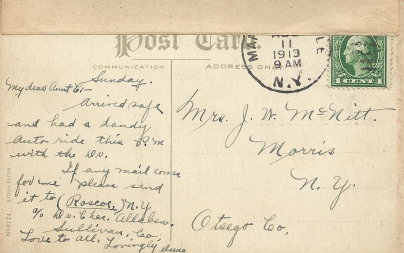 Post Card
COMMUNICATION
ADDRESS ON
11
1913
9 AM
N.Y.
Sunday.
My dear Aunt
Arrived safe
and had a dandy
auto ride this P.M
with the Dr.
If any mail comes
for me please send
it to (Roscoe) N.Y
c/o Dr. Chas.
Sullivan, Co.
Love to all. Lovingly Anna
Mrs. J. W. McNitt.
Morris
N. Y.
Otsego Co.